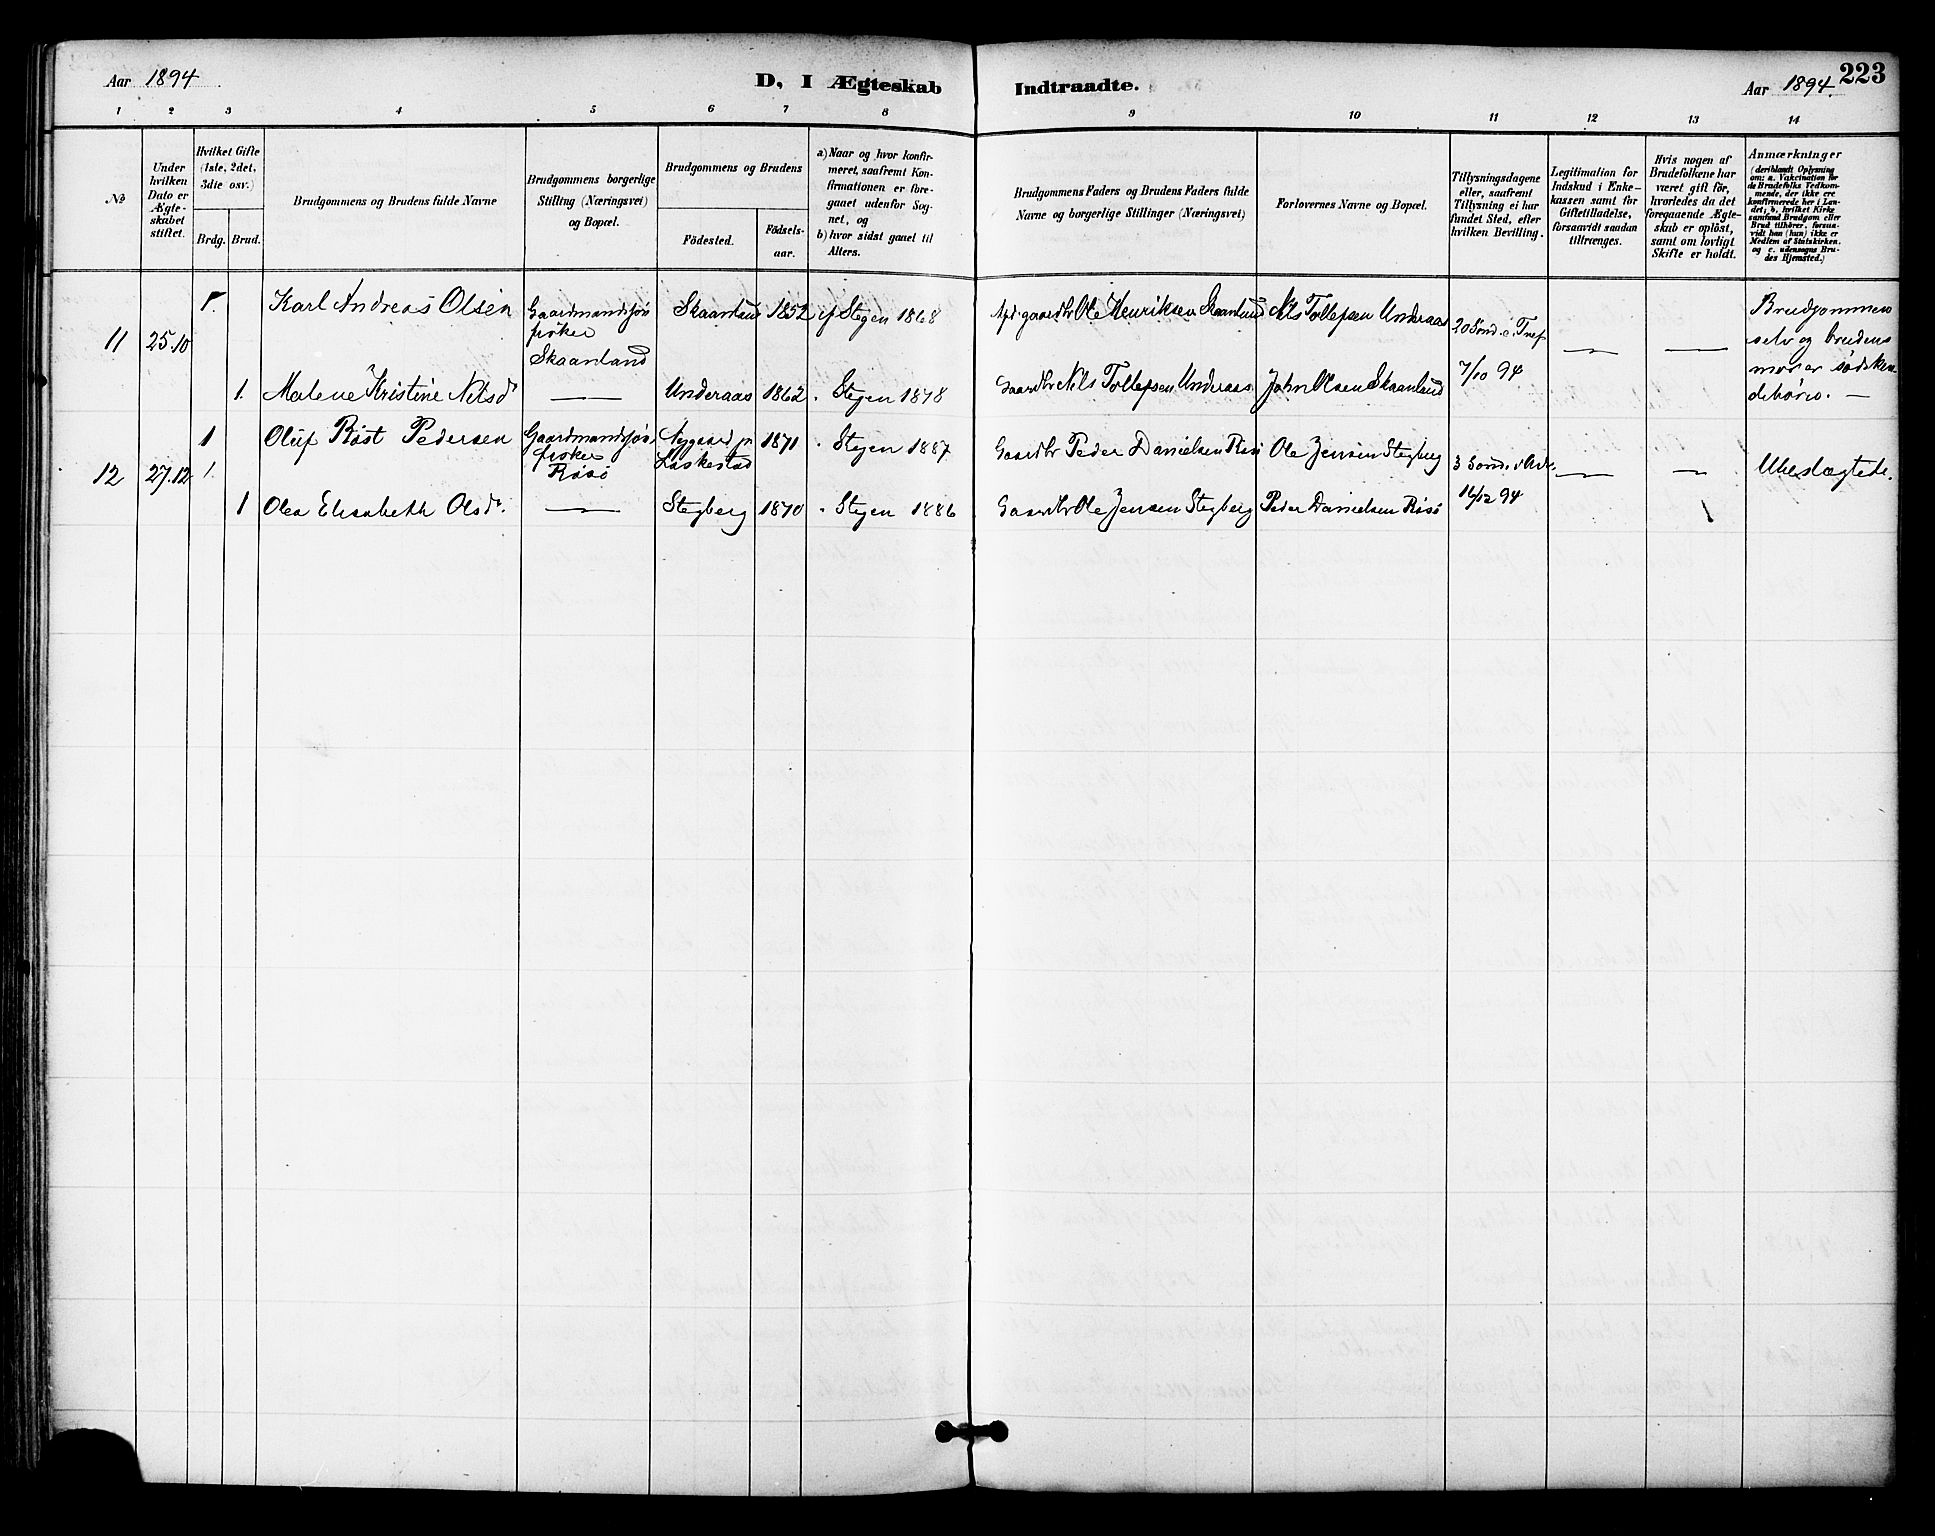 Aar 1894
D, I Ægteskab Indtraadte.
Aar 1894.
223
1 2 3 4 5 6 7 8 9 10 11 12 13 14
No
Under hvilken Dato er Ægte-skabet stiftet.
Hvilket Gifte (1ste, 2det, 3die osv.)
Brdg. Brud.
Brudgommens og Brudens fulde Navne
Brudgommens borgerlige Stilling (Næringsvei) og Bopæl.
Brudgommens og Brudens
Födested.
Födsels-aar.
a) Naar og hvor konfir-meret, saafremt Kon-firmationen er fore-gaaet udenfor Sog-net, og
b) hvor sidst gaaet til Alters.
Brudgommens Faders og Brudens Faders fulde Navne og borgerlige Stillinger (Næringsvei)
Forlovernes Navne og Bopæl.
Tillysningsdagene eller, saafremt Tillysning ei har fundet Sted, efter hvilken Bevilling.
Legitimation for Indskud i Enke-kassen samt for Giftetilladelse, forsaavidt saadan tiltrænges.
Hvis nogen af Brudefolkene har været gift för, hvorledes da det foregaaende Ægte-skab er oplöst, samt om lovligt Skifte er holdt.
Anmærkninger (deriblandt Oplysning om: a. Vakcination for de Brudefolks Vedkom-mende, der ikke ere konfirmerede her i Lan-det; b. hvilket Kirke-samfund Brudgom eller Brud tilhörer, forsaa-vidt han (hun) ikke er Medlem af Statskirken, og c. udensogns Bru-des Hjemsted.)
11 25.10 1. Karl Andreas Olsen Gaardmand Skaanland Skaanland 1852 Stegen 1868 Ole Henriksen Skaanland Nils Tollefsen Underaas 20 Sond. e. Tref 7/10 94
Brudgommen selv og brudens mor er södskendebörn. —
1. Malene Kristine Nilsd Underaas 1862 Stegen 1878 Gaardbr Nils Tollefsen Underaas John Olsen Skaanland
12 27.12 1 Oluf Röst Pedersen Gaardmandssön fisker Rösö Nygaard pr Laskestad 1871 Stegen 1887 Gaardbr Peder Danielsen Rösö Ole Jensen Stegberg 3 Sönd. i Adv. 16/12 94
Ubeslægtede.
1 Olea Elisabeth Olsd. Stegberg 1870 Stegen 1886 Gaardbr Ole Jensen Stegberg Peder Danielsen Rösö